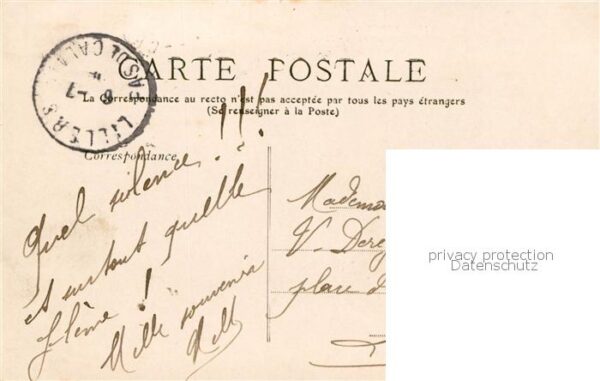 CARTE POSTALE
La Correspondance au recto n'est pas acceptée par tous les pays étrangers
(Se renseigner à la Poste)
LILLERS
PAS DE CALAIS
8 -7
Correspondance
Quel silence..!!!
et surtout quelle
flême !
Mille souvenirs
Mademo
V. Dere
place d
privacy protection
Datenschutz